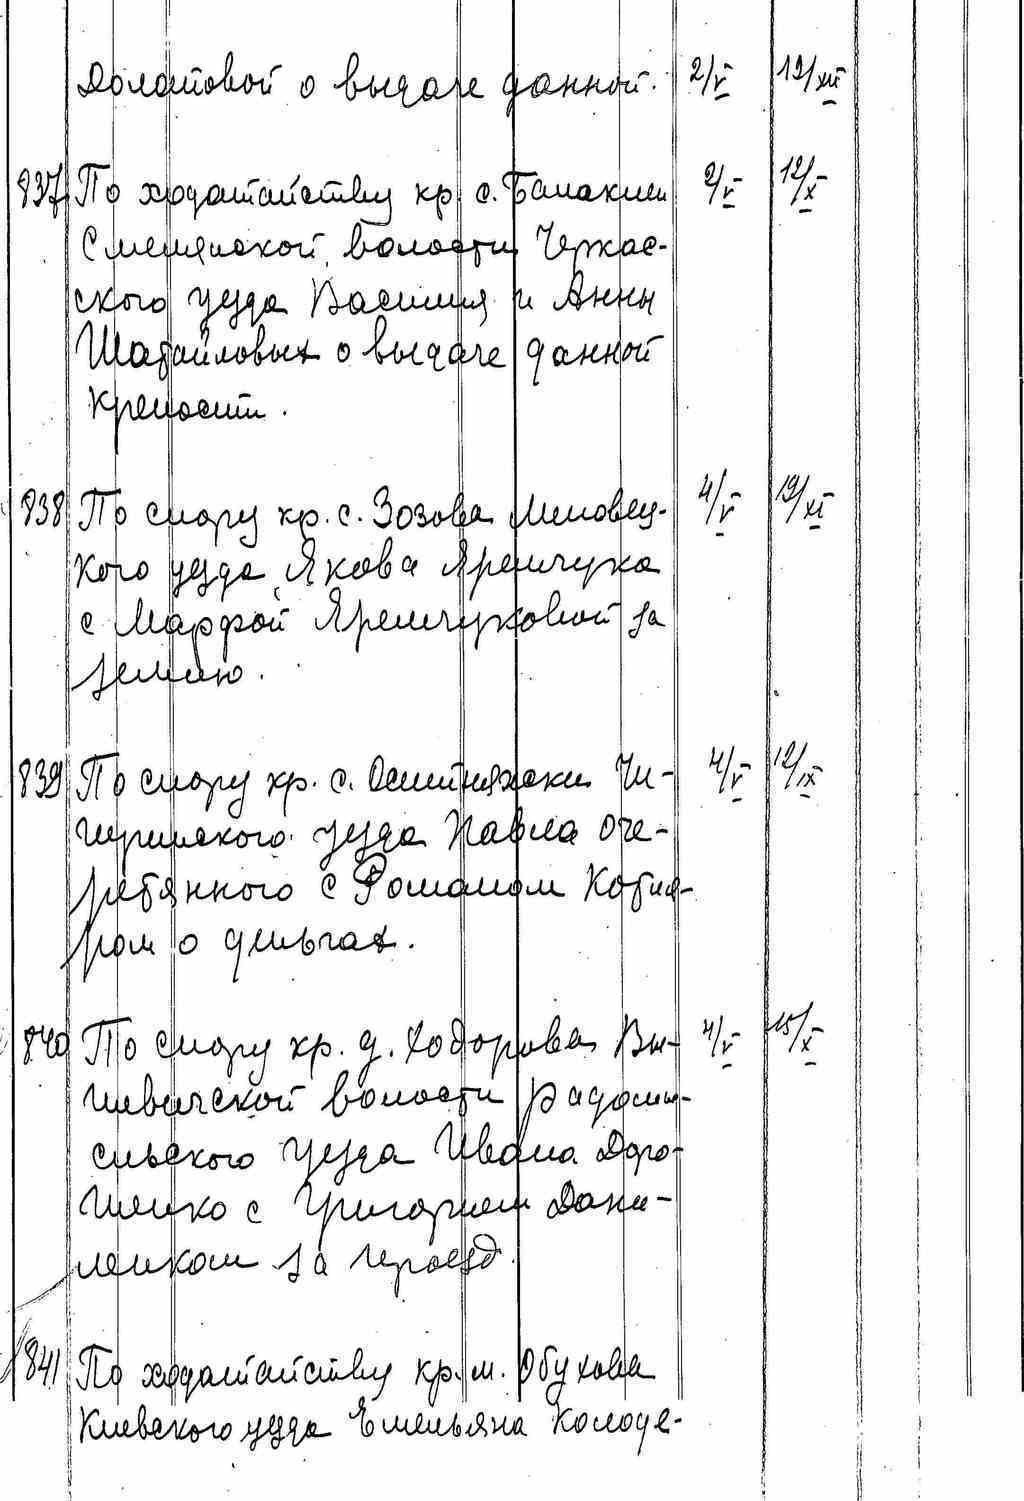 Долотовой о выдаче данной. 2/V 19/XII
837 По ходатайству кр. с. Балаклеи 2/V 12/X
Смелянской волости Черкас-
ского уезда Василия и Анны
Шатайловых о выдаче данной
крепости.
838 По спору кр. с. Зозова Липовец- 4/V 19/XI
кого уезда Якова Яремчука
с Марфой Яремчуковой за
землю.
839 По спору кр. с. Оситняжки Чи- 4/V 12/IX
гиринского уезда Павла Оче-
ретянного с Романом Котля-
ром о деньгах.
840 По спору кр. д. Ходорова Вы- 4/V 15/X
шевичской волости Радомы-
сльского уезда Ивана Доро-
шенко с Григорием Дани-
ленком за проезд.
841 По ходатайству кр. м. Обухова
Киевского уезда Емельяна Колоде-